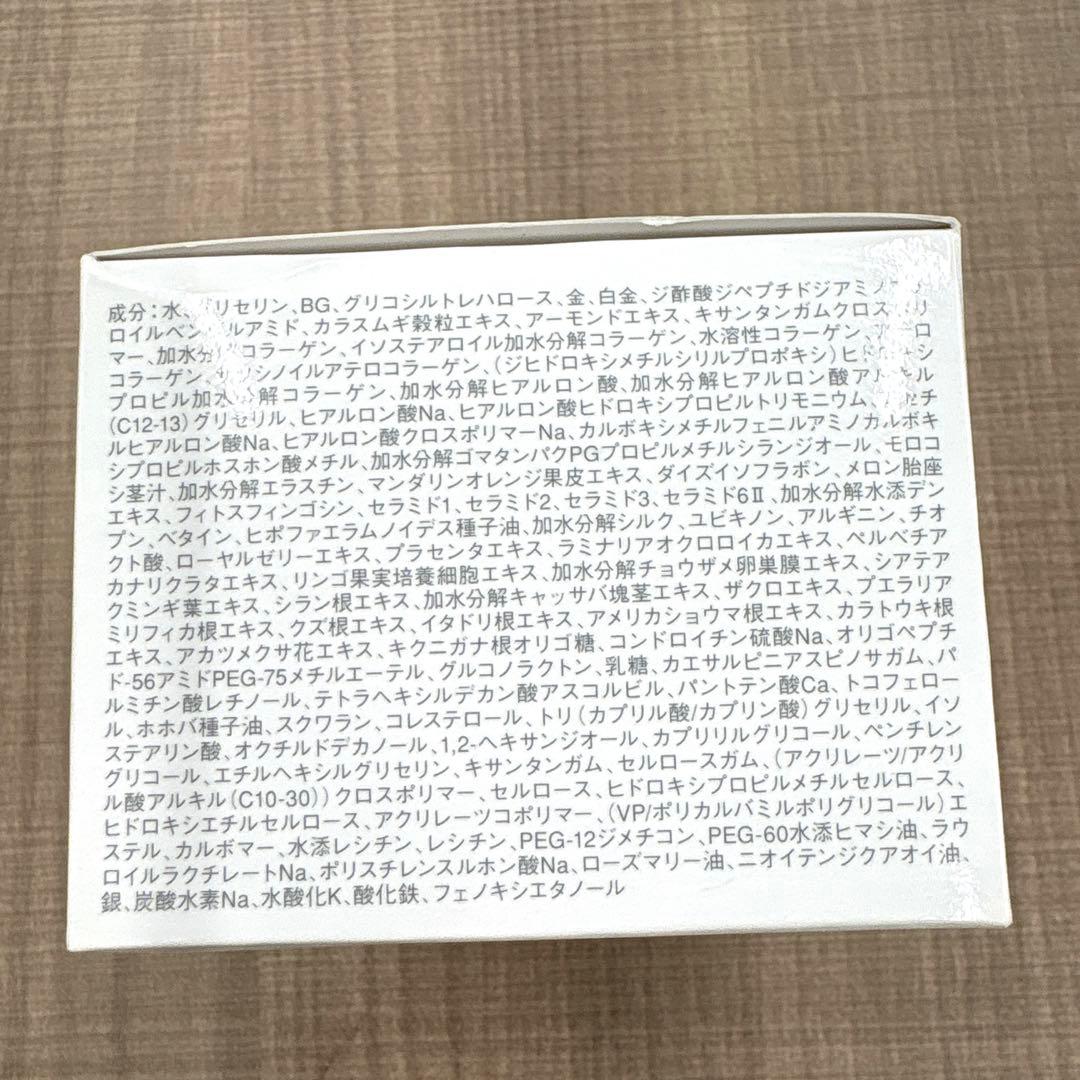 成分：水、グリセリン、BG、グリコシルトレハロース、金、白金、ジ酢酸ジペプチドジアミノブチ
ロイルベンジルアミド、カラスムギ穀粒エキス、アーモンドエキス、キサンタンガムクロスポリ
マー、加水分解コラーゲン、イソステアロイル加水分解コラーゲン、水溶性コラーゲン、
コラーゲン、サクシノイルアテロコラーゲン、（ジヒドロキシメチルシリルプロポキシ）ヒドロキシ
プロピル加水分解コラーゲン、加水分解ヒアルロン酸、加水分解ヒアルロン酸アルキル
（C12-13）グリセリル、ヒアルロン酸Na、ヒアルロン酸ヒドロキシプロピルトリモニウム、アセチ
ルヒアルロン酸Na、ヒアルロン酸クロスポリマーNa、カルボキシメチルフェニルアミノカルボキ
シプロピルホスホン酸メチル、加水分解ゴマタンパクPGプロピルメチルシランジオール、モロコ
シ茎汁、加水分解エラスチン、マンダリンオレンジ果皮エキス、ダイズイソフラボン、メロン胎座
エキス、フィトスフィンゴシン、セラミド1、セラミド2、セラミド3、セラミド6Ⅱ、加水分解水添デン
プン、ベタイン、ヒポファエラムノイデス種子油、加水分解シルク、ユビキノン、アルギニン、チオ
クト酸、ローヤルゼリーエキス、プラセンタエキス、ラミナリアオクロロイカエキス、ペルベチア
カナリクラタエキス、リンゴ果実培養細胞エキス、加水分解チョウザメ卵巣膜エキス、シアテア
クミンギ葉エキス、シラン根エキス、加水分解キャッサバ塊茎エキス、ザクロエキス、プエラリア
ミリフィカ根エキス、クズ根エキス、イタドリ根エキス、アメリカショウマ根エキス、カラトウキ根
エキス、アカツメクサ花エキス、キクニガナ根オリゴ糖、コンドロイチン硫酸Na、オリゴペプチ
ド-56アミドPEG-75メチルエーテル、グルコノラクトン、乳糖、カエサルピニアスピノサガム、パ
ルミチン酸レチノール、テトラヘキシルデカン酸アスコルビル、パントテン酸Ca、トコフェロー
ル、ホホバ種子油、スクワラン、コレステロール、トリ（カプリル酸/カプリン酸）グリセリル、イソ
ステアリン酸、オクチルドデカノール、1,2-ヘキサンジオール、カプリリルグリコール、ペンチレン
グリコール、エチルヘキシルグリセリン、キサンタンガム、セルロースガム、（アクリレーツ/アクリ
ル酸アルキル（C10-30））クロスポリマー、セルロース、ヒドロキシプロピルメチルセルロース、
ヒドロキシエチルセルロース、アクリレーツコポリマー、（VP/ポリカルバミルポリグリコール）エ
ステル、カルボマー、水添レシチン、レシチン、PEG-12ジメチコン、PEG-60水添ヒマシ油、ラウ
ロイルラクチレートNa、ポリスチレンスルホン酸Na、ローズマリー油、ニオイテンジクアオイ油、
銀、炭酸水素Na、水酸化K、酸化鉄、フェノキシエタノール